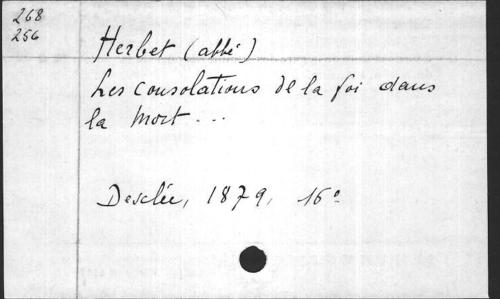 268
256
Herbet (abbé)
Les consolations de la foi dans
la mort ...
Desclée, 1879, 16º